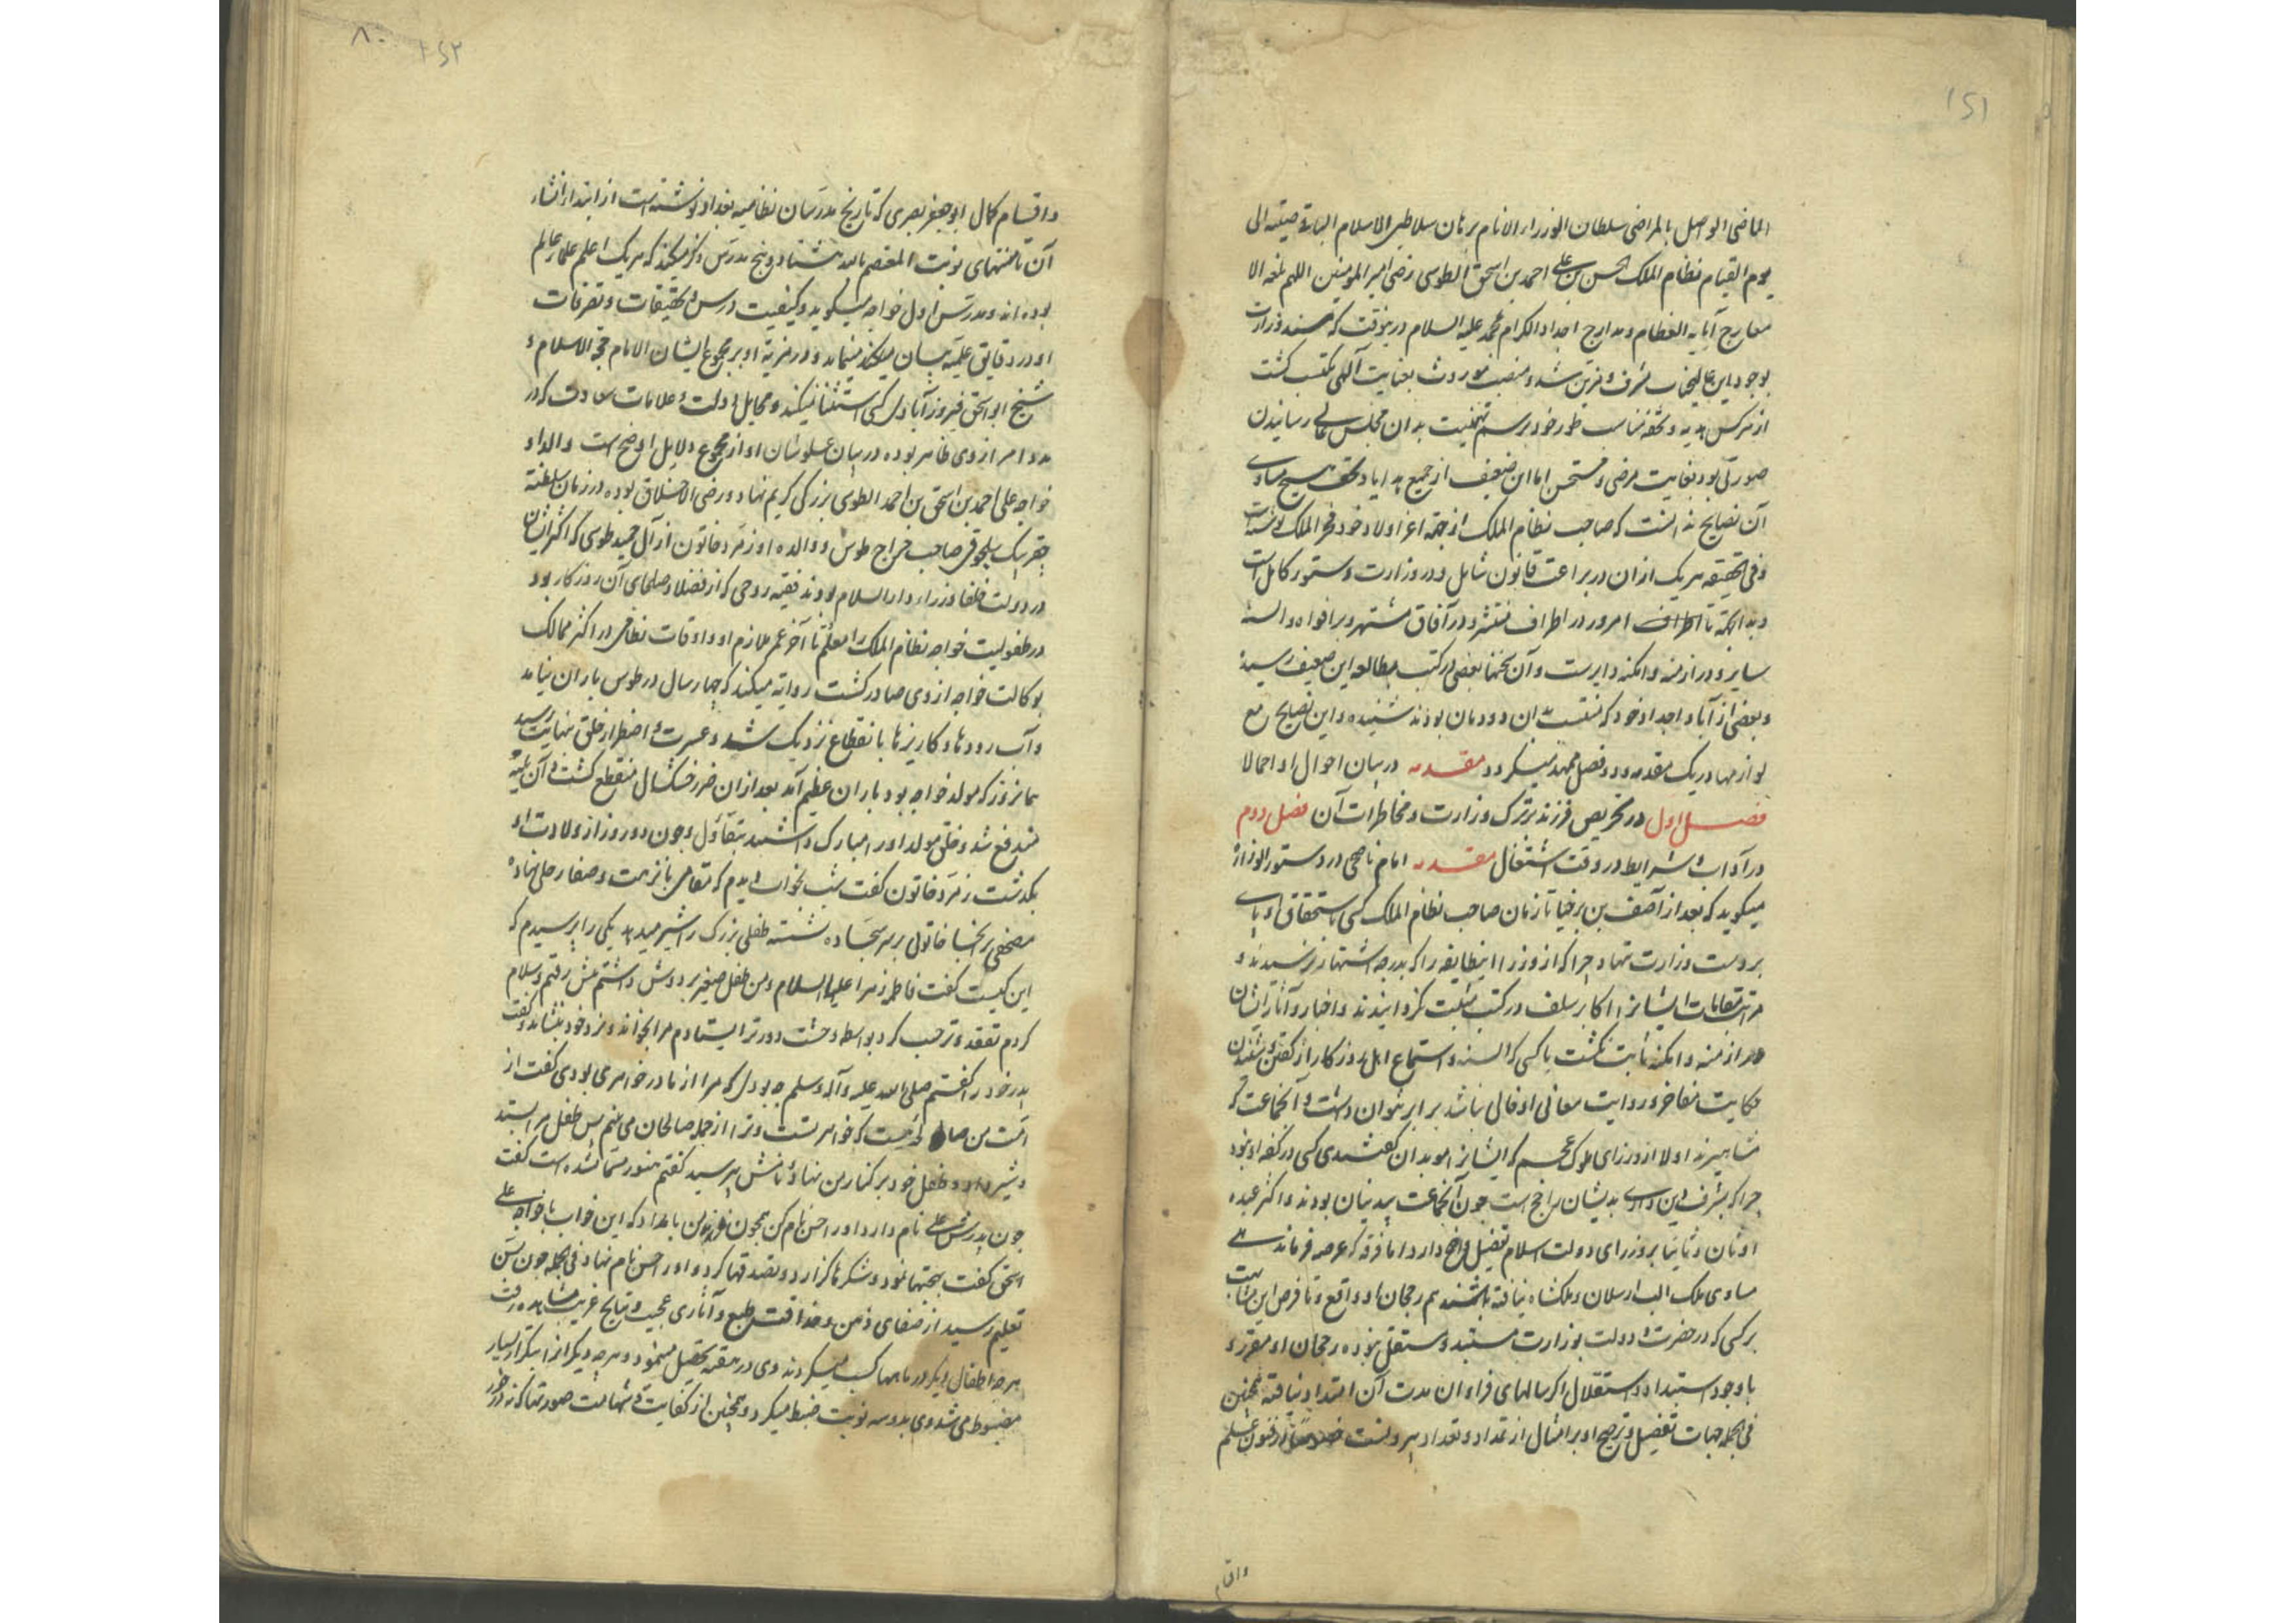 ۱۵۱
الماضی الواصل بالمراضی سلطان الوزراء الانام برهان سلاطین الاسلام الباقی صیته الی
یوم القیام نظام الملک الحسن بن علی احمد بن اسحق الطوسی رضی امیر المومنین اللهم بلغه الا
معارج آبایه العظام و مدارج اجداد الکرام محمد علیه السلام درینوقت که مسند وزارت
بوجود این عالیجناب مشرف و مزین شد و منصب موروث بعنایت آلهی مکتسب کشت
از هرکس هدیه و تحفه مناسب طور خود برسم تهنیت بدان مجلس عالی رسانیدن
صورتی بود بغایت مرضی و مستحسن اما این ضعیف از جمیع هدایا و تحف هیچ مساوی
آن نصایح ندانست که صاحب نظام الملک از جهة اعز اولاد خود فخر الملک نوشته است
و فی الحقیقه هریک ازان در براعت قانون شامل و در وزارت دستور کامل است
و بدانجهة تا امروز در اطراف منتشر و در آفاق مشتهر و بر افواه و السنه
سایر و در ازمنه و امکنه دایرست و آن سخنها بعضی در کتب بمطالعه این ضعیف رسیده
و بعضی از آبا و اجداد خود که منتسب بدان دودمان بودند شنیده و این نصایح مع
لوازمها در یک مقدمه و دو فصل ممهد میکردد مقدمه در بیان احوال او اجمالا
فصل اول در تحریص فرزند بترک وزارت و مخاطرات آن فصل دوم
در آداب و شرایط در وقت اشتغال مقدمه امام ناصحی در دستور الوزراء
میکوید که بعد از آصف بن برخیا تا زمان صاحب نظام الملک کسی باستحقاق او پای
بر دست وزارت ننهاد چرا که از وزرا اینطایفه را که بدرجه اشتهار نرسیدند و
مراتب مقامات ایشانرا اکابر سلف در کتب مثبت نکردانیدند و اخبار و آثار ایشان
در ازمنه و امکنه ثابت نکشت با کسی که السنه و استماع اهل روزکار از کفتن و شنیدن
حکایت مفاخر و روایت معالی او خالی نباشد برابر نتوان داشت و آنجماعت که
مشاهیرند اولا از وزرای ملوک عجم که ایشانرا موبدان کفتندی کسی در کفه او نبود
چرا که بشرف دین او را بدیشان راجح است چون آنجماعت بیدینان بودند و اکثر عبده
اوثان و ثانیا بر وزرای دولت اسلام تفضیل واضح دارد اما فرقه که عرصه فرماندهی
مساوی ملک الب ارسلان و ملکشاه نیافته باشند هم رجحان او واقع و تا فرض این مثابت
بر کسی که در حضرت و دولت بوزارت مستبد و مستقل نبوده رجحان او مقرر و
با وجود استبداد و استقلال اکر سالهای فراوان مدت آن امتداد نیافته همچنین
فی الجمله جهات تفضیل و ترجیح او بر امثال از تمداد و تعداد بیرونست از فنون علم
واقسام
۱۵۲
۸۰
و اقسام کمال ابو جعفر بصری که تاریخ مدرسان نظامیه بغداد نوشته است از ابتداء انشاء
آن تا منتهای نوبت المعتصم بالله هشتاد و پنج مدرس ذکر میکند که هریک اعلم علماء عالم
بوده اند و مدرس اول خواجه میکوید و کیفیت درس و تحقیقات و تصرفات
او در دقایق علمیه بیان میکند مینماید و در مزیة او بر مجموع ایشان الا امام حجة الاسلام و
شیخ ابو اسحق فیروزآبادی کسی استثنا نمیکند و مخایل دولت و علامات سعادت که در
مبدا امر از وی ظاهر بوده در بیان علو شان او از مجموع دلایل اوضح است والد او
خواجه علی احمد بن اسحق بن احمد الطوسی بزرکی کریم نهاد و رضی الاخلاق بوده در زمان سلطنة
چقر بیک سلجوقی صاحب خراج طوس و والده او زمرد خاتون از آل حمید طوسی که اکثر ایشان
در دولت خلفا وزراء دار السلام بودند فقیه روحی که از فضلا و صلحای آن روزکار بود
در طفولیت خواجه نظام الملک را معلم تا آخر عمر ملازم او و اوقات نظامی در اکثر ممالک
بوکالت خواجه از وی صادر کشت روایة میکند که چهار سال در طوس باران نیامد
و آب رودها و کاریزها بانقطاع نزدیک شد و عسرت و اضطرار خلق بنهایت رسید
همانروز که مولد خواجه بود باران عظیم آمد بعد ازان ضرر خشکسال منقطع کشت و آن بلیه
مندفع شد و خلق مولد او را مبارک داشتند بتفاول و چون دو روز از ولادت او
بکذشت زمرد خاتون کفت شب بخواب دیدم که مقامی با نزهت و صفا رحلی نهاده
مصحفی برآنجا خاتونی بر سجاده نشسته طفلی بزرک را شیر میدهد یکی را پرسیدم که
این کیست کفت فاطمه زهرا علیها السلام و من طفل صغیر بر دوش داشتم پیش رفتم و سلام
کردم تفقد و ترحیب کرد بواسطه وحشت دورتر ایستادم مرا بخواند و نزد خود بنشاند و کفت
پدر خود را کفتم صلی الله علیه و آله و سلم چه بودی که مرا از مادر خواهری بودی کفت از
امت من صالحه هست که خواهر تست و ترا از جمله صالحان می بینم پس طفل مرا بستد
و شیر داد و طفل خود بر کنار من نهاد و نامش پرسید کفتم هنوز مسما نشده است کفت
چون پدرش علی نام دارد او را حسن نام کن همچون فرزند من بامداد که این خواب با خواجه علی
اسحق کفت بهجتها نمود و شکرها کزارد و تصدقها کرد و او را حسن نام نهاد فی الجمله چون بسن
تعلیم رسید از صفای ذهن و حذاقت طبع و آثاری عجیب و نتایج غریب مشاهده رفت
هر چه اطفال دیکر در ماهها کسب میکردند وی در هفته تحصیل مینمود و هر چه دیکرانرا بتکرار بسیار
مضبوط می شد وی بدو سه نوبت ضبط میکرد و همچنین از کفایت و شهامت صورتها که نه در خور